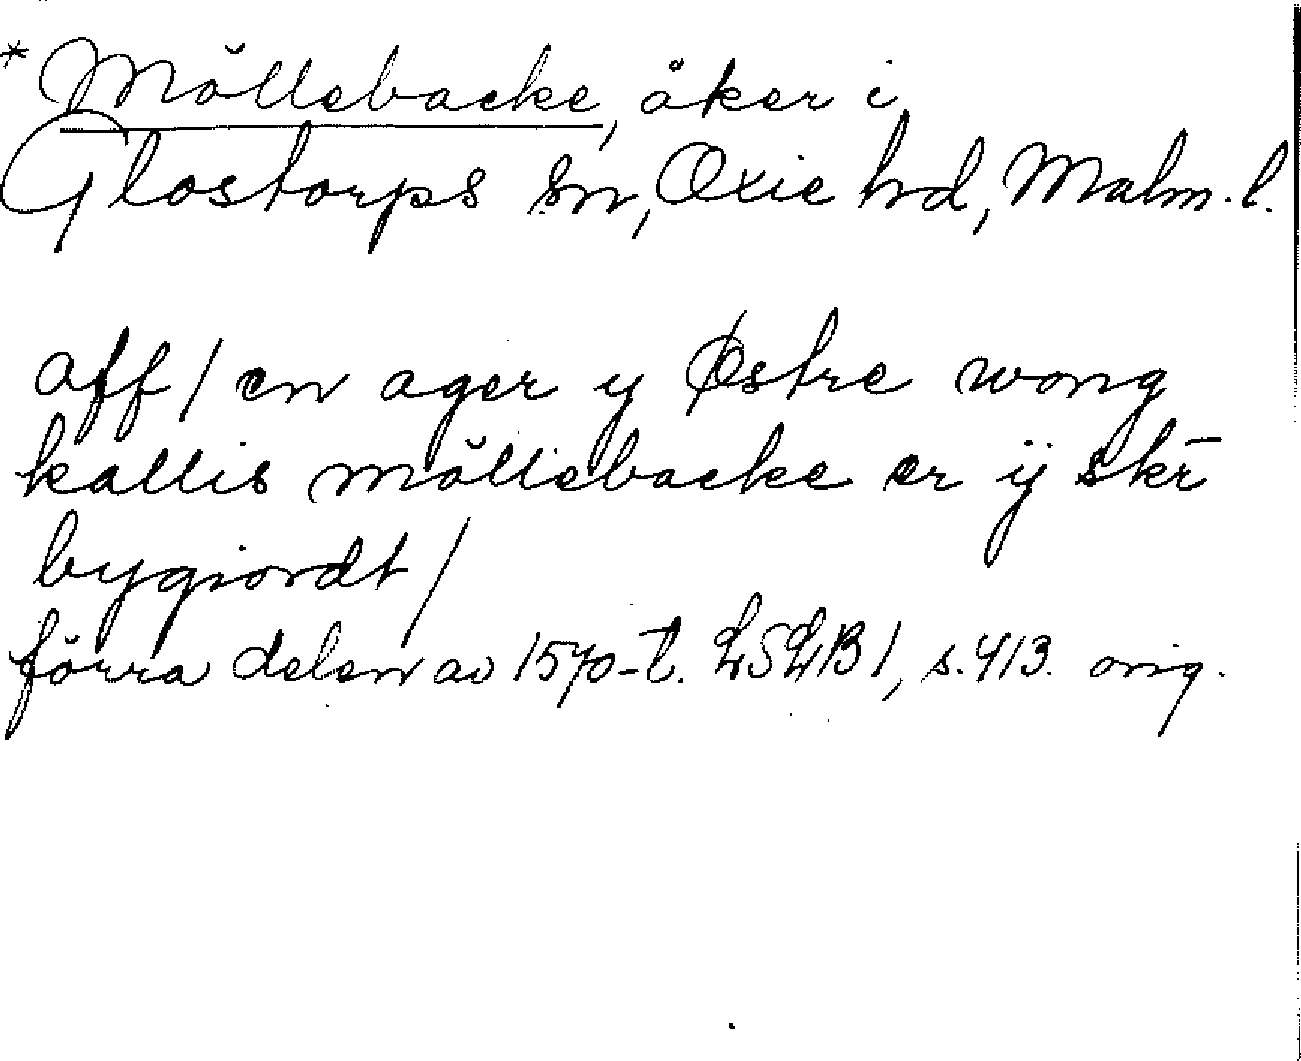 *Möllebacke, åker i
Glostorps sn, Oxie hd, Malm. l.
aff / en ager y Østre wong
kallis möllebacke er ij skr̄
bygiordt /
förra delen av 1570-t. LSLB1, s. 413. orig.